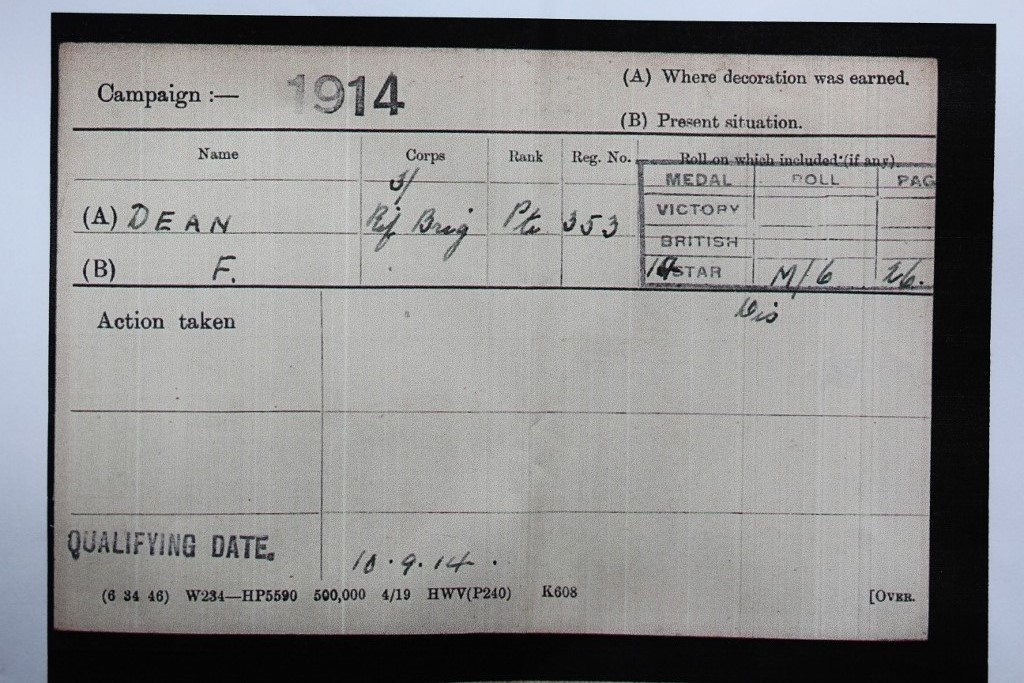 Campaign :— 1914
(A) Where decoration was earned.
(B) Present situation.
Name Corps Rank Reg. No. Roll on which included (if any).
MEDAL ROLL PAG
3/
(A) DEAN Rif Brig Pte 353 VICTORY
BRITISH
(B) F. 14 STAR M/6 26.
Dis
Action taken
QUALIFYING DATE. 10.9.14.
(6 34 46) W234—HP5590 500,000 4/19 HWV(P240) K608 [OVER.